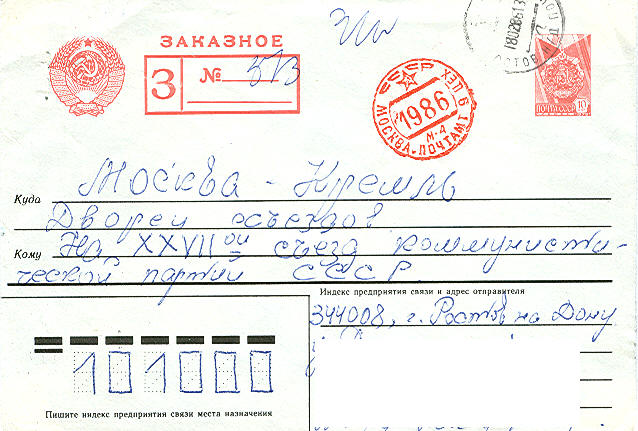 ЗАКАЗНОЕ
З № 513
СССР
МОСКВА-ПОЧТАМТ
1986
М-4
ПОЧТА СССР 10
Куда Москва - Кремль
Дворец съездов
Кому На XXVII ой съезд коммунисти-
ческой партии СССР
Индекс предприятия связи и адрес отправителя
344008, г. Ростов на Дону
101000
Пишите индекс предприятия связи места назначения